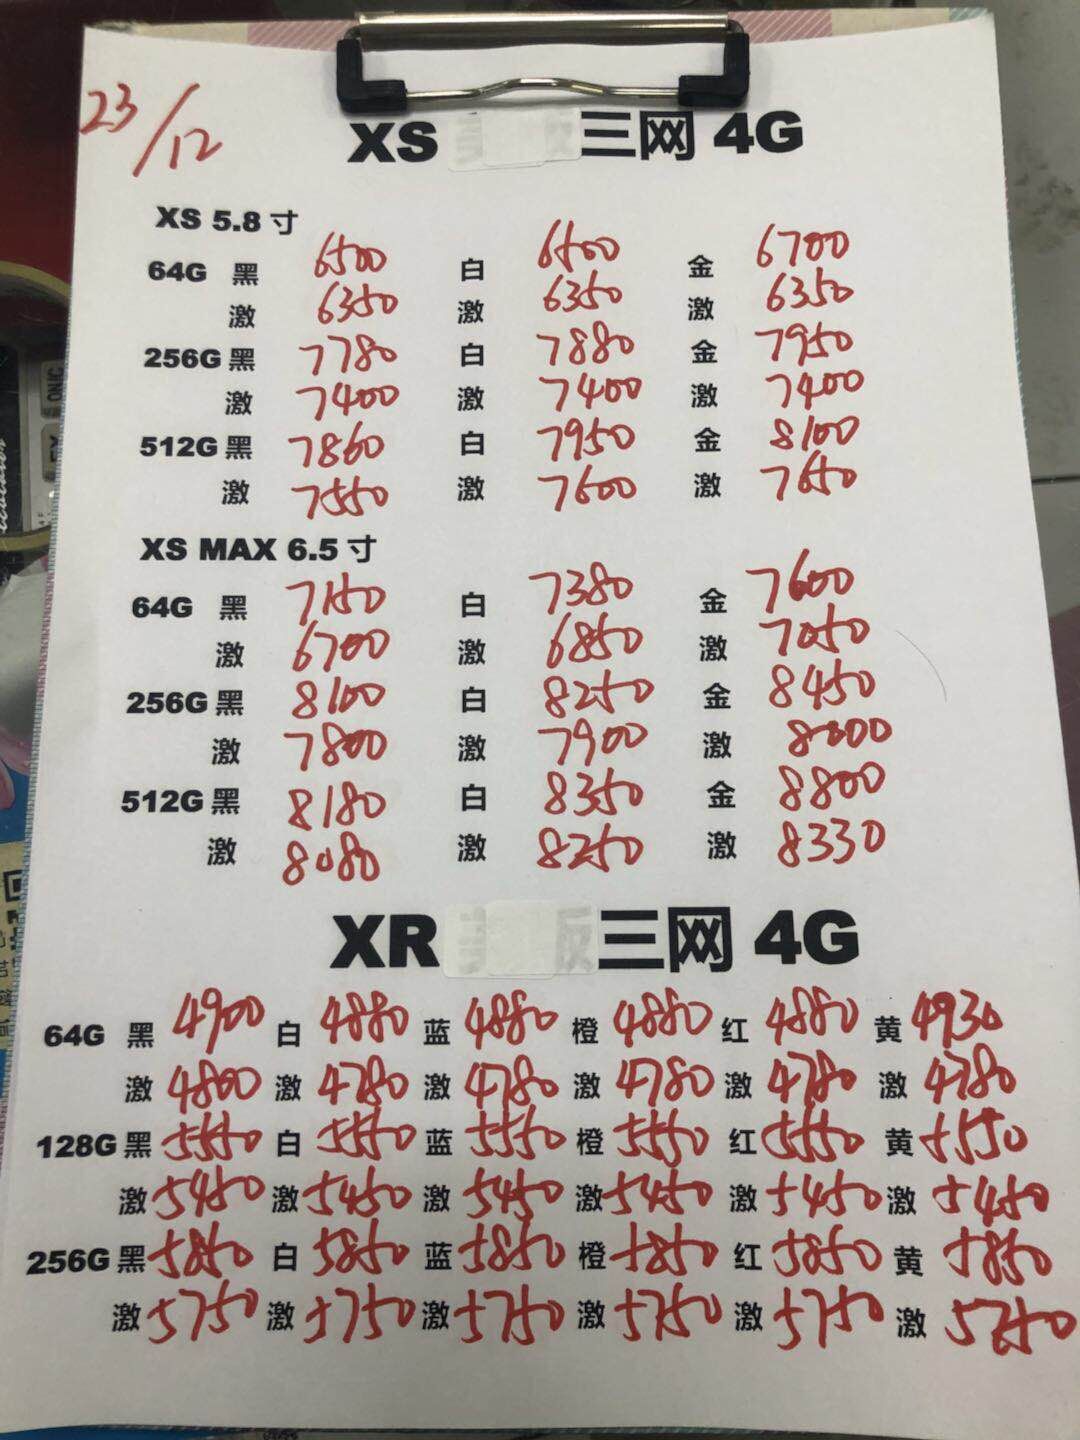 23/12
XS 三网 4G
XS 5.8 寸
64G 黑 6500 白 6500 金 6700
激 6350 激 6350 激 6350
256G 黑 7780 白 7880 金 7950
激 7400 激 7400 激 7400
512G 黑 7860 白 7950 金 8100
激 7550 激 7600 激 7650
XS MAX 6.5 寸
64G 黑 7150 白 7380 金 7600
激 6700 激 6850 激 7050
256G 黑 8100 白 8250 金 8450
激 7800 激 7900 激 8000
512G 黑 8180 白 8350 金 8800
激 8080 激 8250 激 8330
XR 三网 4G
64G 黑 4900 白 4880 蓝 4880 橙 4880 红 4880 黄 4930
激 4800 激 4780 激 4780 激 4780 激 4780 激 4780
128G 黑 5550 白 5550 蓝 5550 橙 5550 红 5550 黄 5550
激 5450 激 5450 激 5450 激 5450 激 5450 激 5450
256G 黑 5850 白 5850 蓝 5850 橙 5850 红 5850 黄 5850
激 5750 激 5750 激 5750 激 5750 激 5750 激 5750